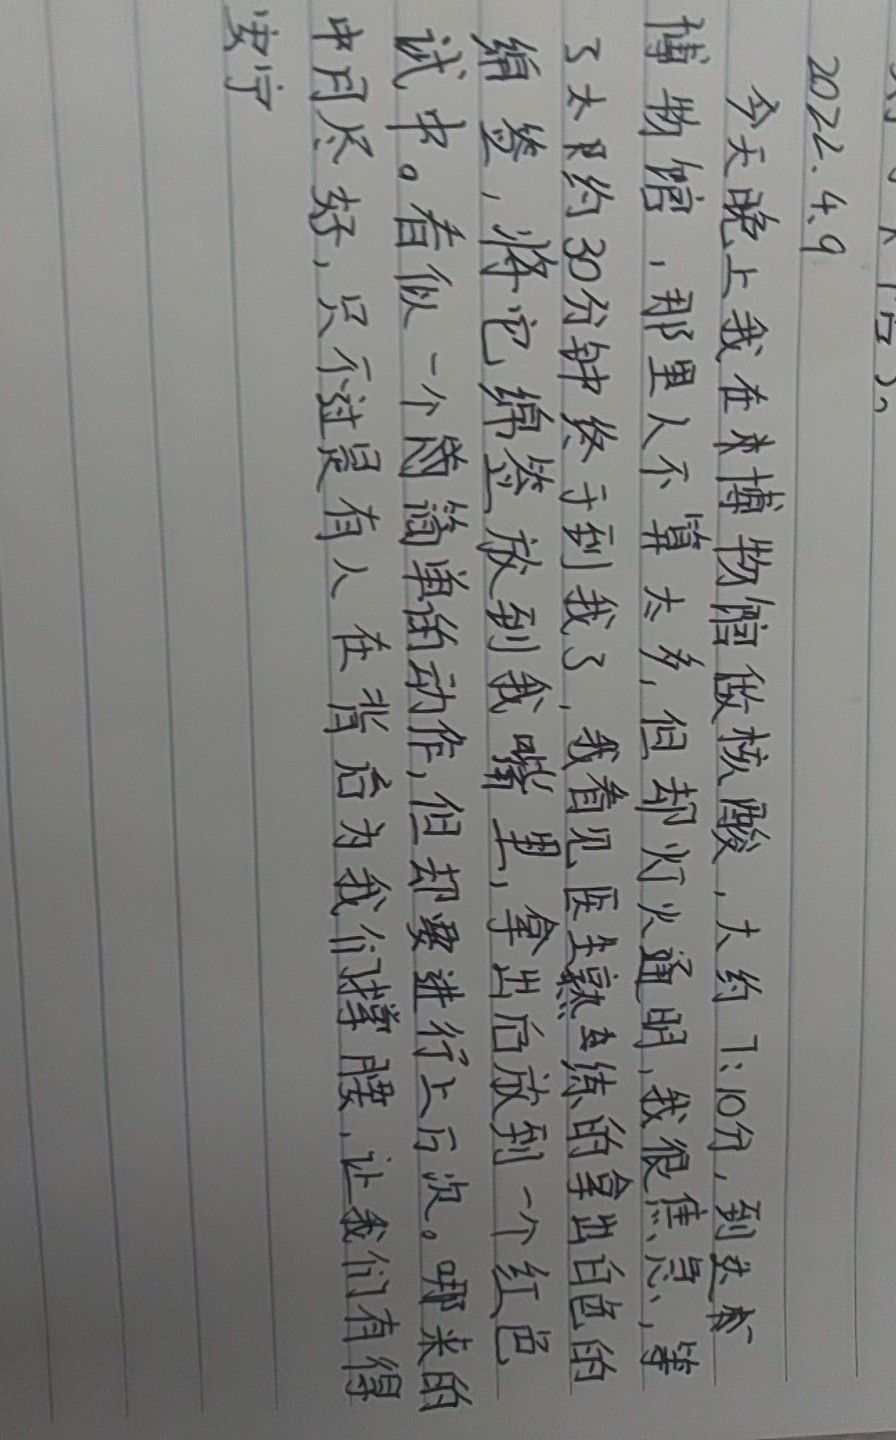 2022.4.9
今天晚上我在来博物馆做核酸，大约7:10分，到达
博物馆，那里人不算太多，但却灯火通明，我很焦急，等
了大约30分钟终于到我了，我看见医生熟练的拿出白色的
绵签，将它绵签放到我嘴里，拿出后放到一个红色
试中。看似一个简单的动作，但却要进行上万次。哪来的
只不过是有人在背后为我们撑腰，让我们有得
安宁